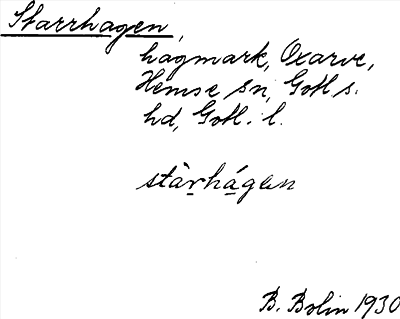 Starrhagen,
hagmark, Oxarve,
Hemse sn, Gotl. s.
hd, Gotl. l.
stàrhágen
B. Bolin 1930